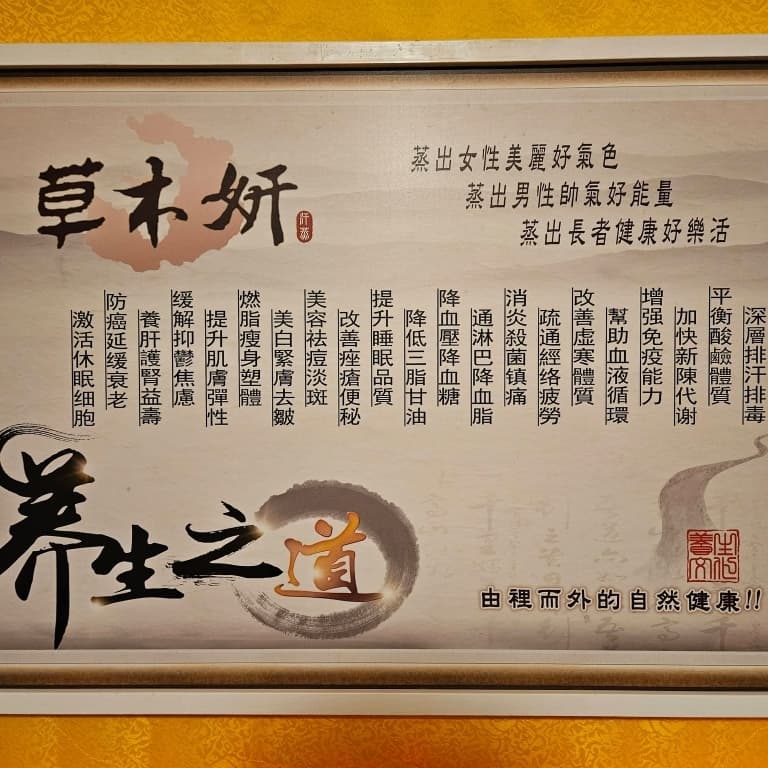 草木妍
蒸出女性美麗好氣色
蒸出男性帥氣好能量
蒸出長者健康好樂活
深層排汗排毒
平衡酸鹼體質
加快新陳代谢
增强免疫能力
幫助血液循環
改善虛寒體質
疏通經络疲勞
消炎殺菌镇痛
通淋巴降血脂
降血壓降血糖
降低三脂甘油
提升睡眠品質
改善痤瘡便秘
美容祛痘淡斑
美白緊膚去皺
燃脂瘦身塑體
提升肌膚彈性
缓解抑鬱焦慮
養肝護腎益壽
防癌延缓衰老
激活休眠细胞
养生之道
由裡而外的自然健康!!